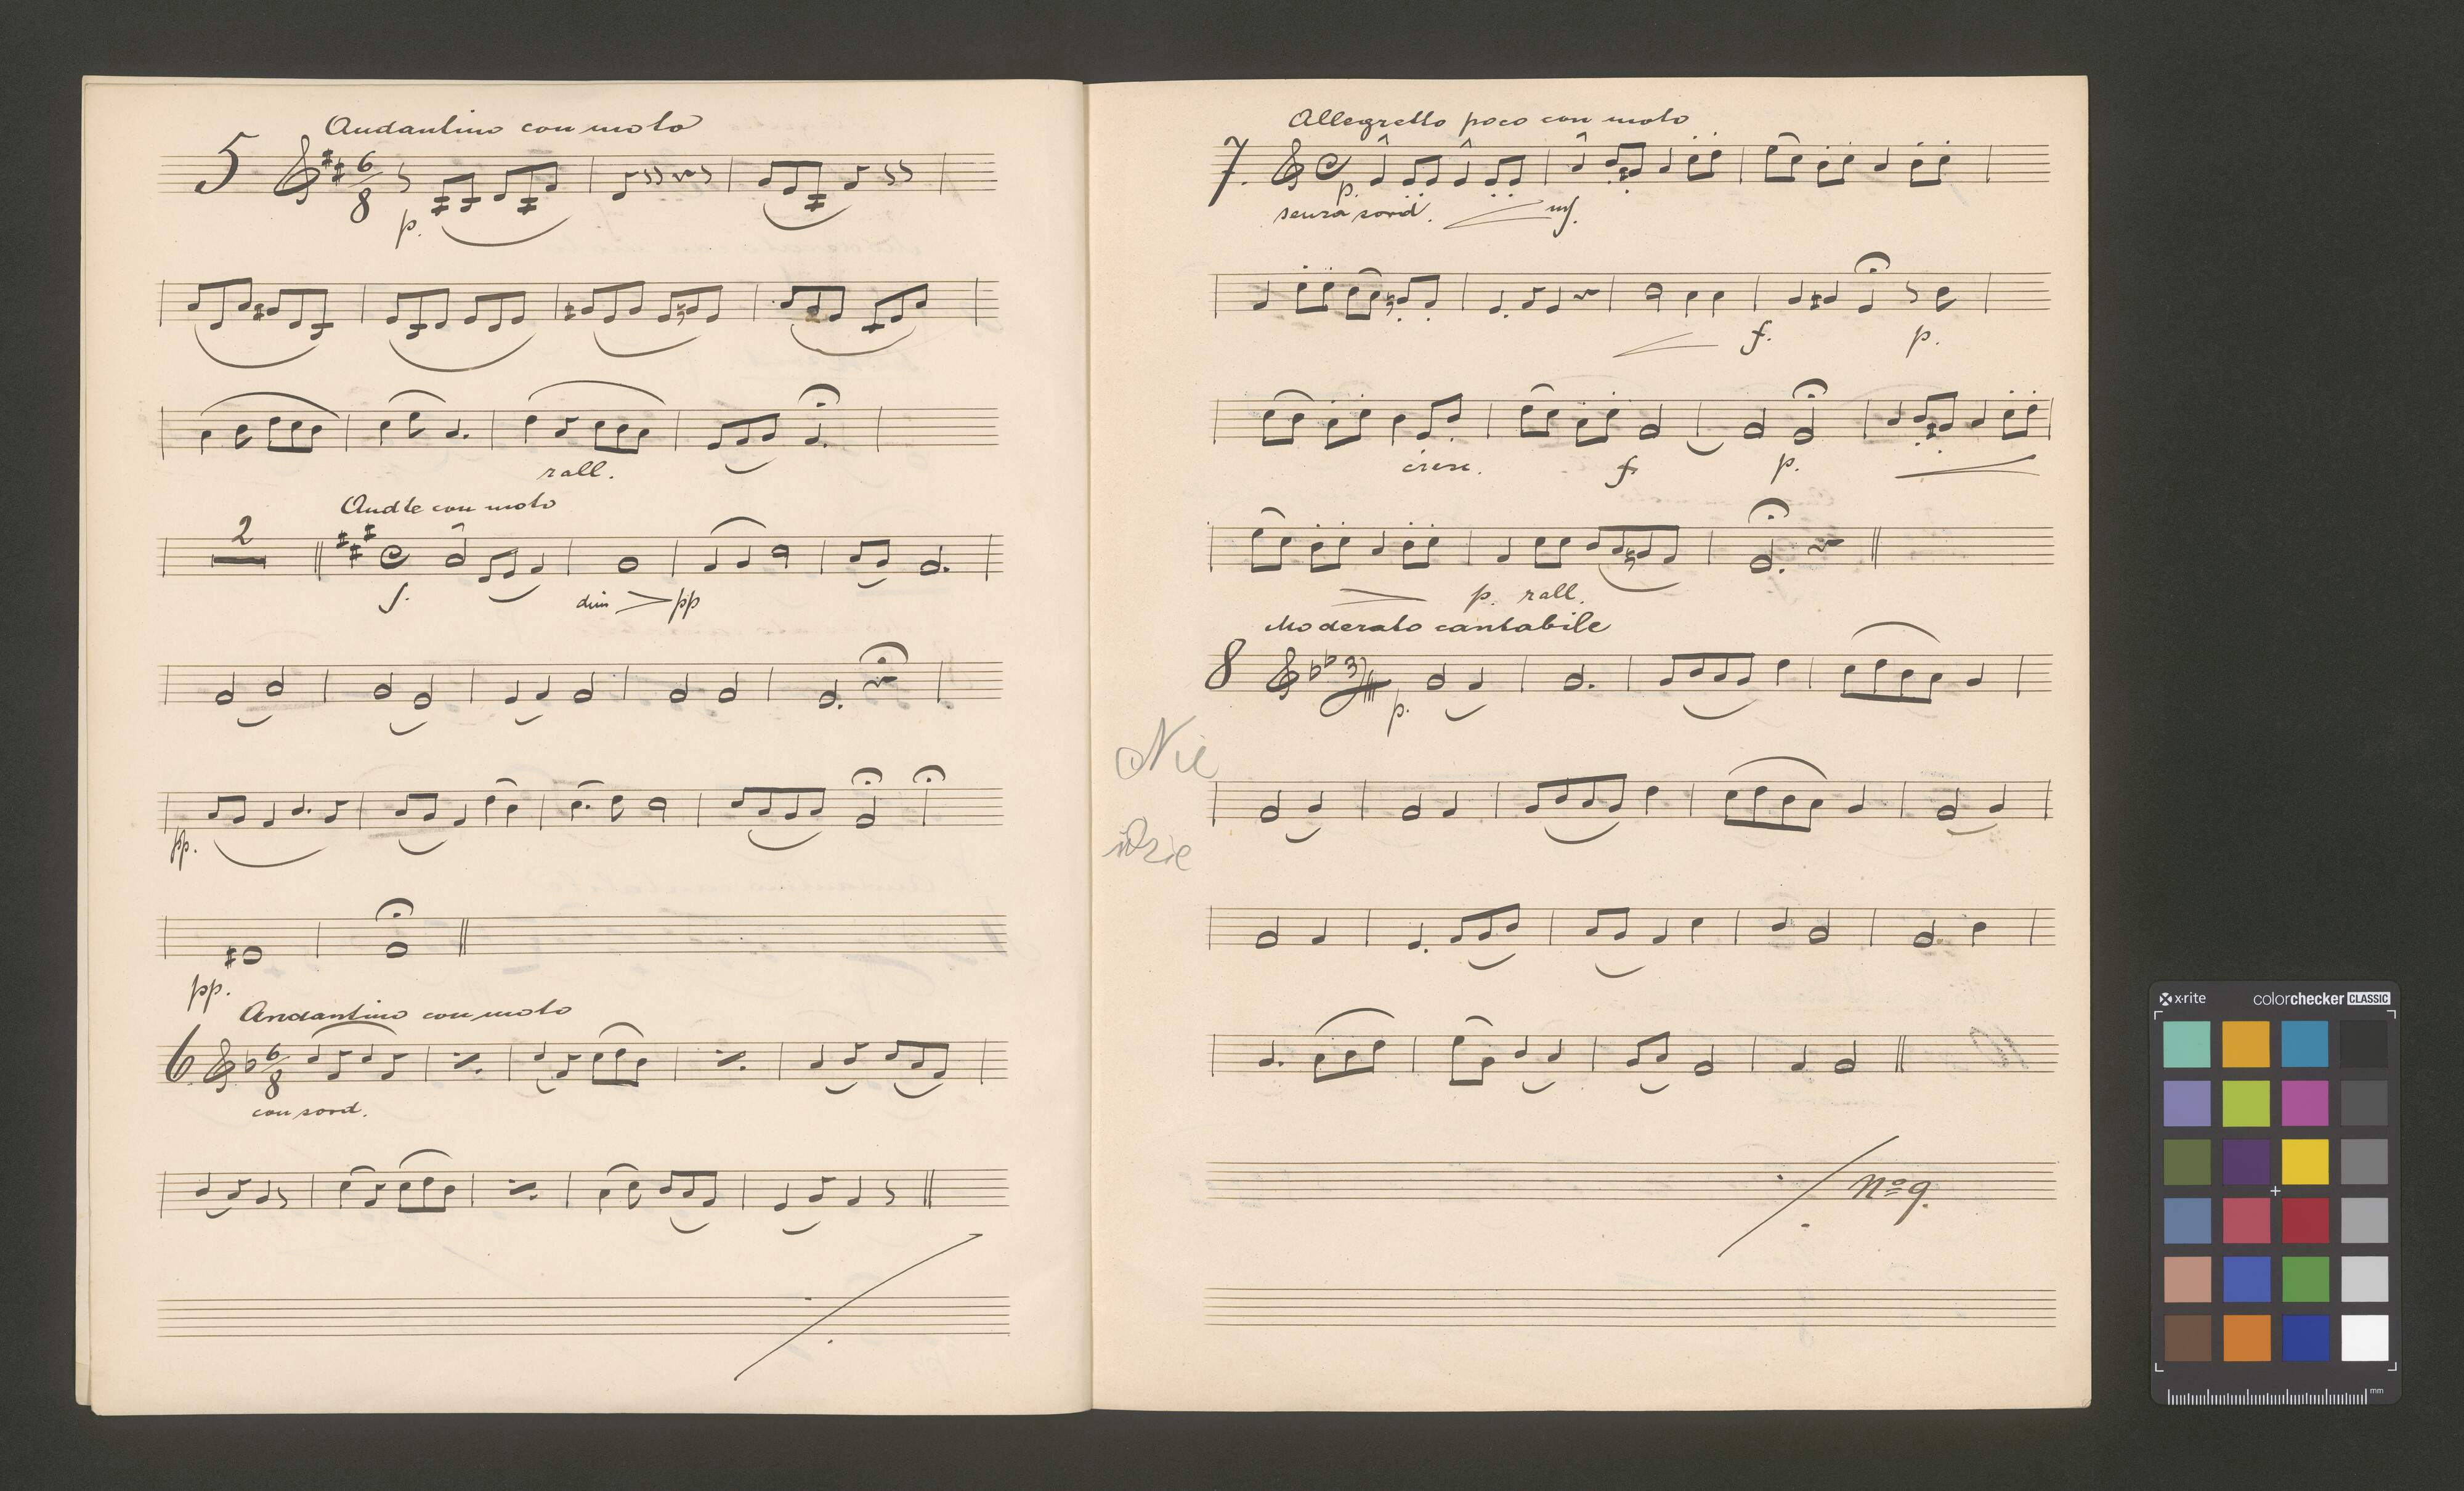 Andantino con moto
5 6/8
p.
rall.
2 Andte con moto
f.
dim pp
pp.
pp.
Andantino con moto
6 6/8
con sord.
Allegretto poco con moto
7.
p.
senza sord. mf.
f. p.
cresc. f p.
p. rall.
Moderato cantabile
8 3/4
p.
Nie
No 9.
x-rite colorchecker CLASSIC
mm